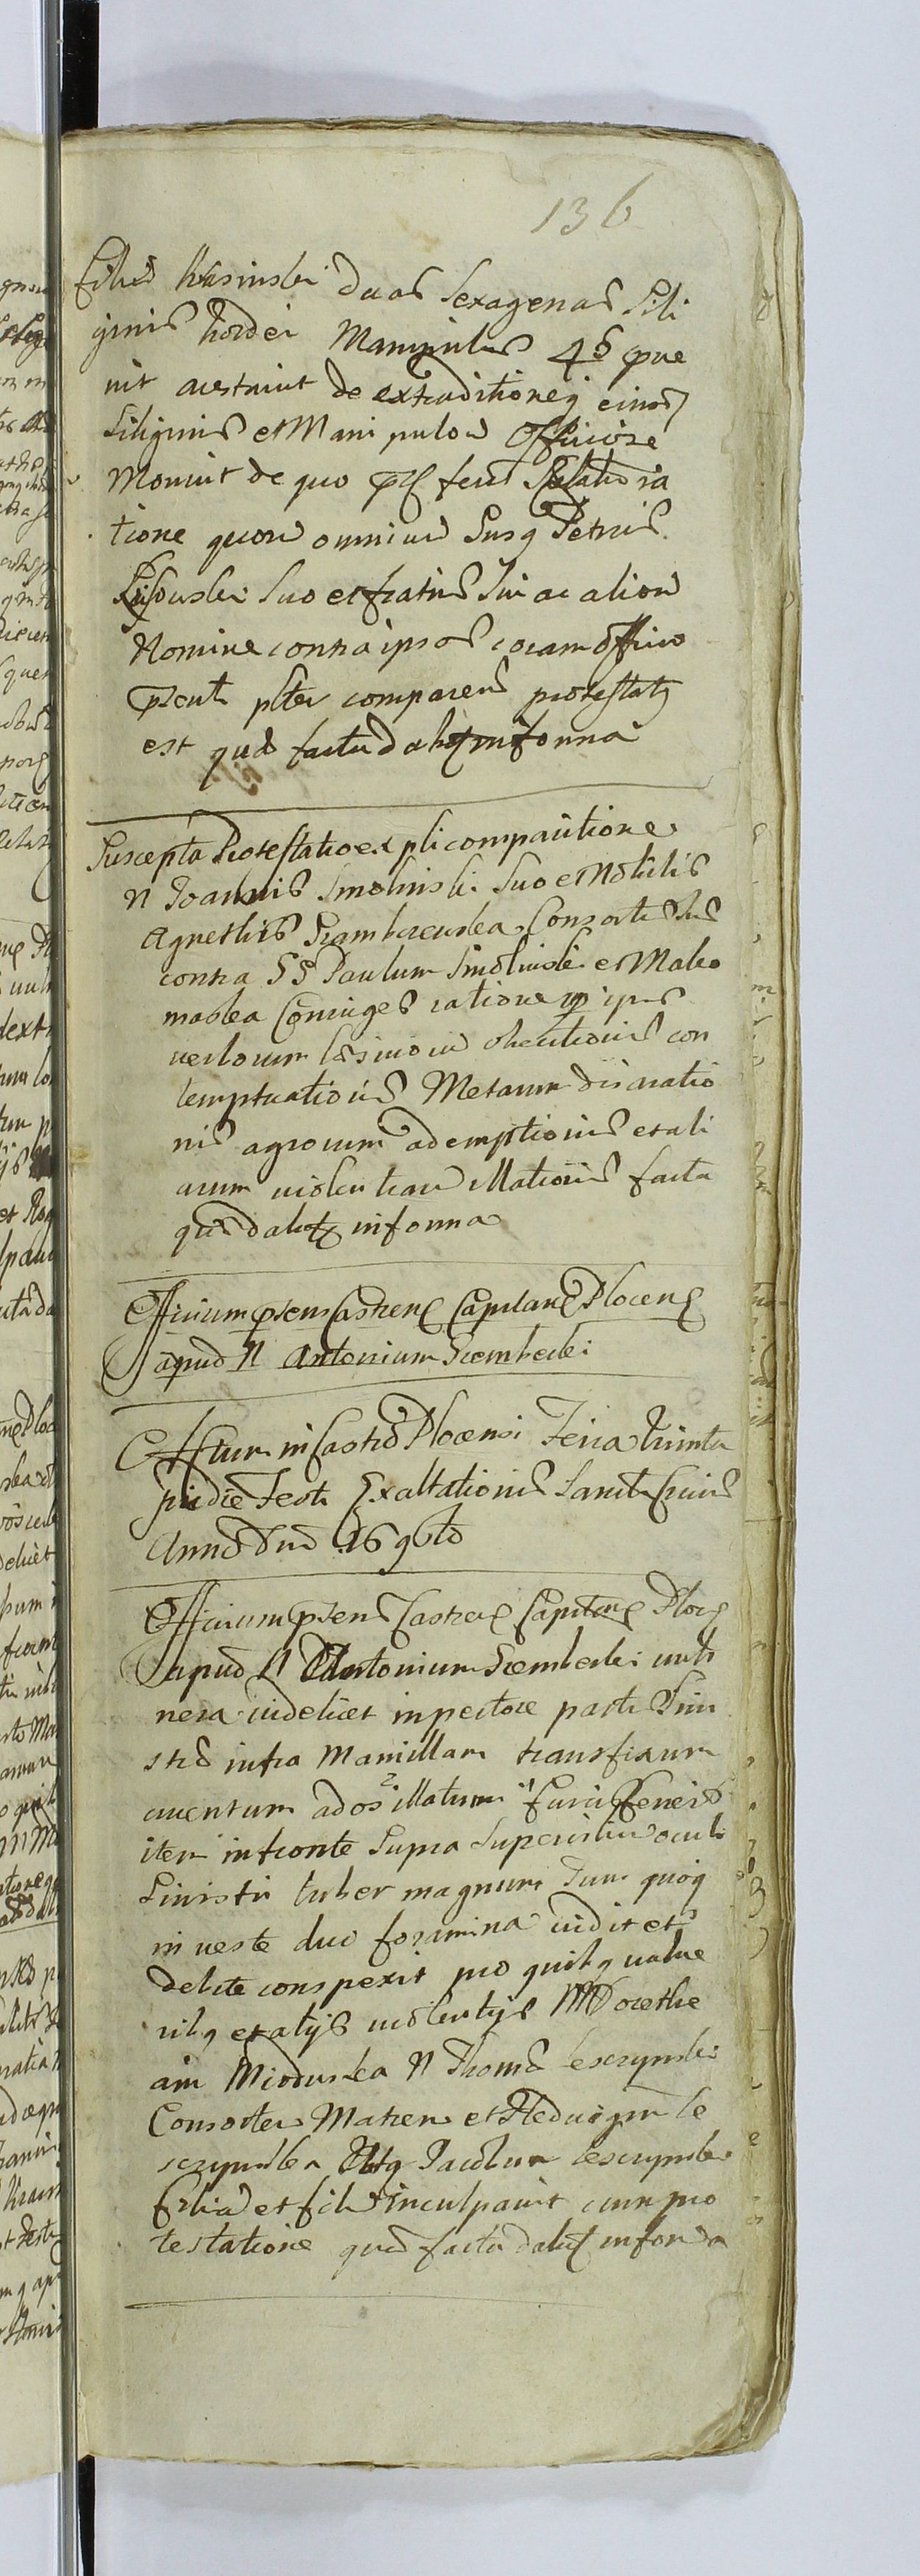 136
filius Krasinski duas sexagenas sili
ginis hordei Manipulos 45 pue
nit arestauit de extraditioneq eiusd
Siliginis et Manipulor Officiose
Monuit de quo
tione quor omnium Susq Petrus
suo et fratris Sui ac alior
Nomine contra ipsos coram officio
psenti plter comparens protestatq
est que facta dabit in forma
Suscepta Protestatio ex pli comparitione
N Joannis Smolinski suo et Nobilis
Agnethis Consortis sue
contra SS Paulum Smolinski et
Coniuges ratione ipsis
verborum lesiuor obiectionis con
temptuationis Metarum dissipatio
nis agrorum ademptionis et ali
arum violentiar illationis facta
que dabit in forma
Officium psens Castren Capitane Plocen
apud N Antonium Szembecki
Actum in Castro Plocensi Feria
pridie Festi Exaltationis Sancte Crucis
Anno Dni 169
Officium psens Castren Capitan Ploc
apud N Antonium Szembecki vul
nera videlicet in pectore parte Sini
stra infra Mamillam transfixum
cruentum ad os illatum furca ferrea
item in fronte supra supercilium oculi
Sinistri tuber magnum Tum quoq
in veste duo foramina vidit et
debite conspexit pro quibq vulne
ribq et alijs violentijs Dorothe
am Mioduska N Thome
Consortem Matrem et Hedvigim
Jacobum
filiam et filium inculpauit cum pro
testatione que facta dabit in forma